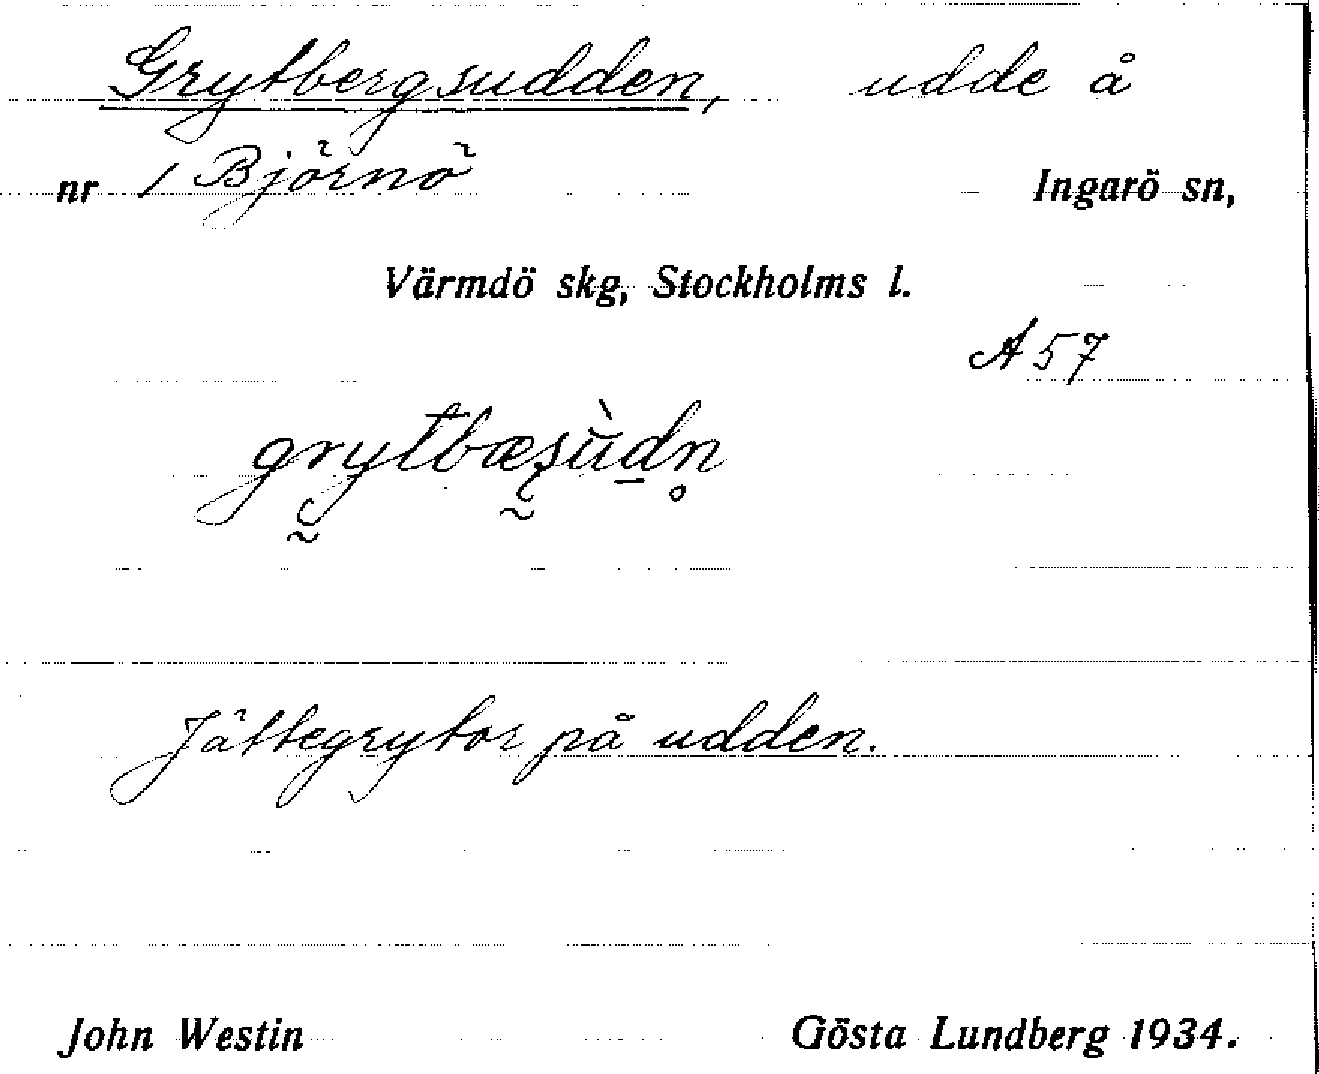 Grytbergsudden, udde å
nr 1 Björnö Ingarö sn,
Värmdö skg, Stockholms l.
A 57
grytbæsùdn̥
Jättegrytor på udden.
John Westin Gösta Lundberg 1934.